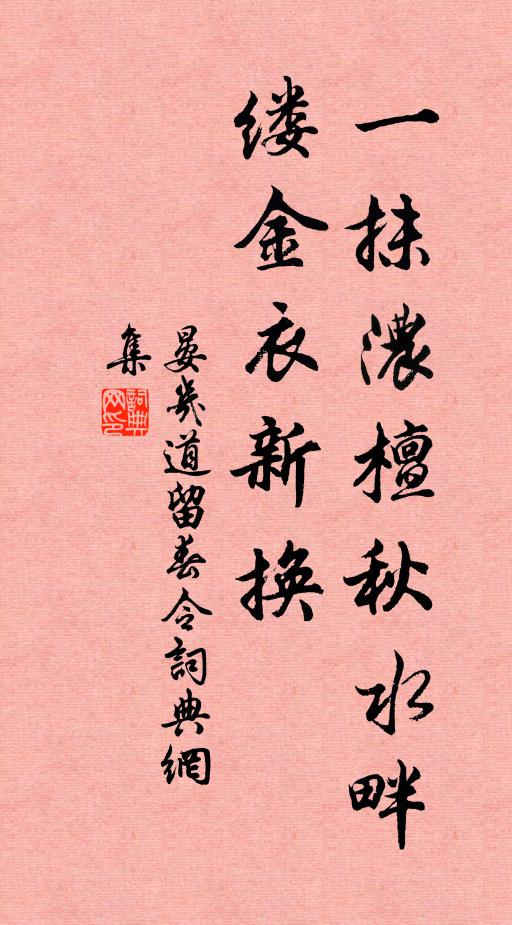 一抹濃檀秋水畔
缕金衣新換
晏幾道留春令詞典網
集
詞典
网印